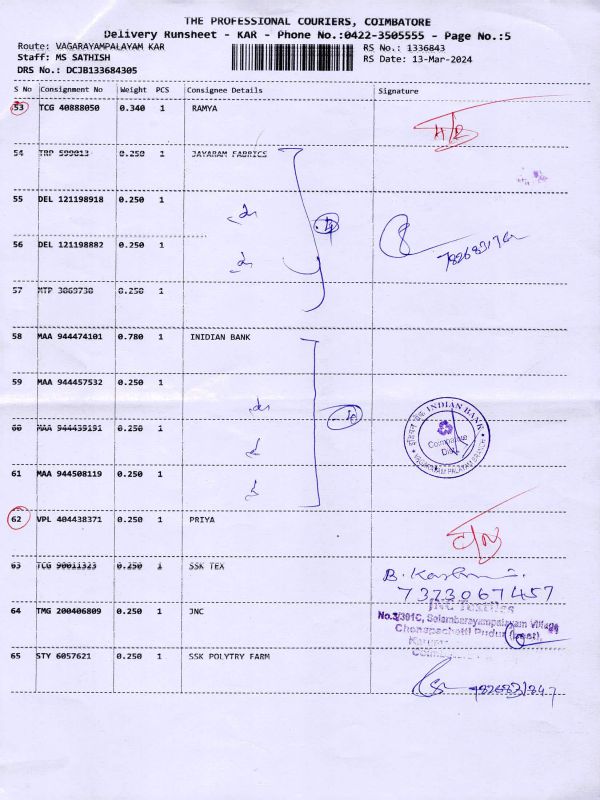 THE PROFESSIONAL COURIERS, COIMBATORE
Delivery Runsheet - KAR - Phone No.:0422-3505555 - Page No.:5
Route: VAGARAYAMPALAYAM KAR
RS No.: 1336843
Staff: MS SATHISH
RS Date: 13-Mar-2024
DRS No.: DCJB133684305
S No Consignment No Weight PCS Consignee Details Signature
53 TCG 40888050 0.340 1 RAMYA
54 TRP 599013 0.250 1 JAYARAM FABRICS
55 DEL 121198918 0.250 1
56 DEL 121198882 0.250 1
57 MTP 3869738 0.250 1
58 MAA 944474101 0.780 1 INIDIAN BANK
59 MAA 944457532 0.250 1
60 MAA 944439191 0.250 1
INDIAN BANK
इंडियन बैंक
Coimbatore
Dist
VAGARAYAMPALAYAM BRANCH
61 MAA 944508119 0.250 1
62 VPL 404438371 0.250 1 PRIYA
63 TCG 90011323 0.250 1 SSK TEX
7373067457
64 TMG 200406809 0.250 1 JNC
JNC Textiles
No.3/391C, Selambarayampalayam Village
Chonapachetti Pudur (Post),
65 STY 6057621 0.250 1 SSK POLYTRY FARM